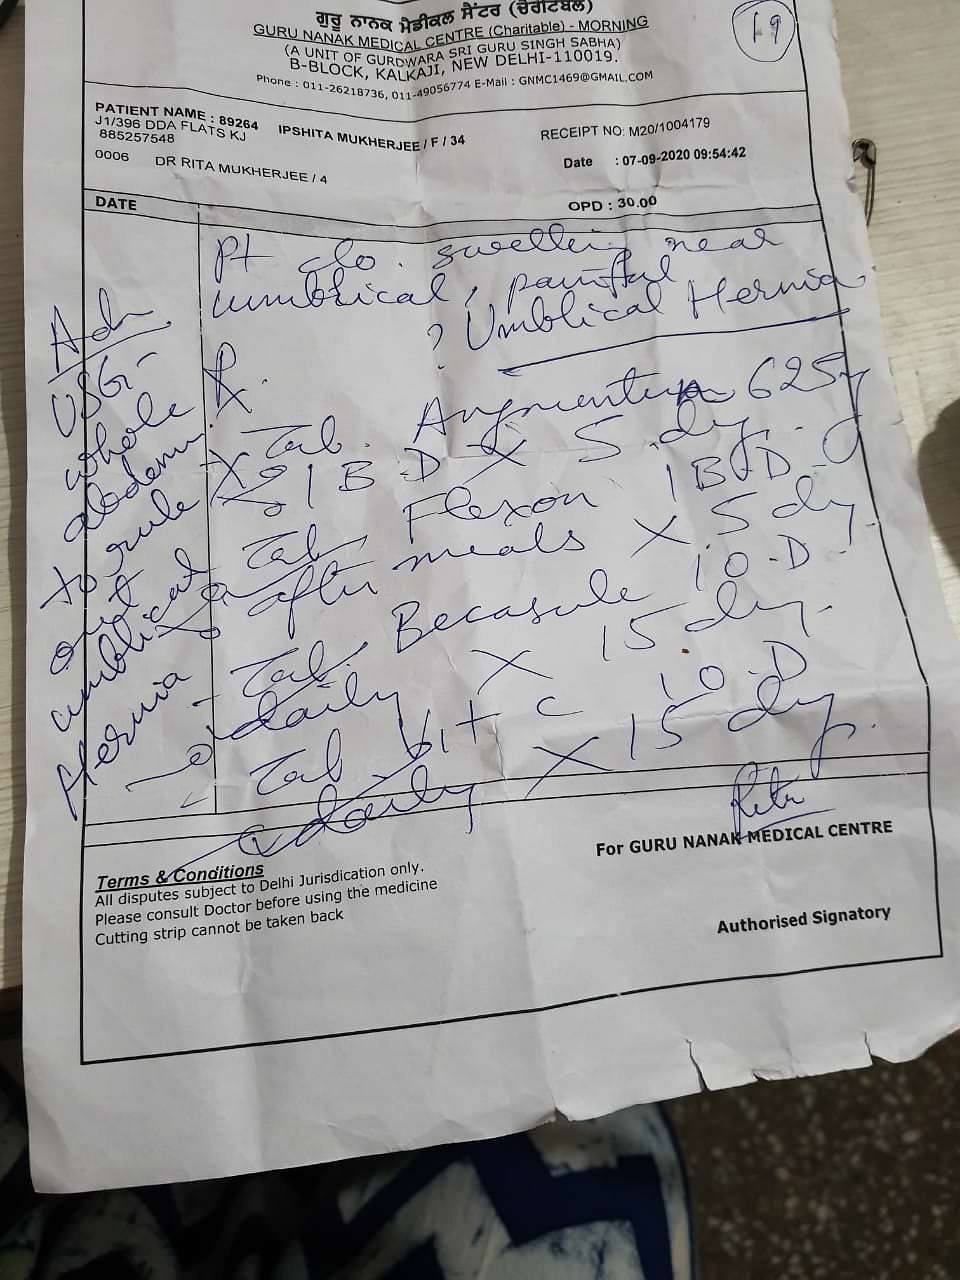 ਗੁਰੂ ਨਾਨਕ ਮੈਡੀਕਲ ਸੈਂਟਰ (ਚੈਰੀਟੇਬਲ)
GURU NANAK MEDICAL CENTRE (Charitable) - MORNING
(A UNIT OF GURDWARA SRI GURU SINGH SABHA)
B-BLOCK, KALKAJI, NEW DELHI-110019.
Phone : 011-26218736, 011-49056774 E-Mail : GNMC1469@GMAIL.COM
19
PATIENT NAME : 89264 IPSHITA MUKHERJEE / F / 34
J1/396 DDA FLATS KJ
885257548
0006 DR RITA MUKHERJEE / 4
RECEIPT NO: M20/1004179
Date : 07-09-2020 09:54:42
OPD : 30.00
DATE
Pt c/o. swelling near
umblical, painful
? Umblical Hernia
Adv.
USG-
whole
abdomen
to rule
out
umblical
Hernia
Rx.
Tab. Augmentin 625
1 B-D X 5 dy.
Tab. Flexon 1 B-D
after meals X 5 dy
Tab. Becasule 1 O-D
daily X 15 dy.
Tab Vit C 1 O-D
daily X 15 dy.
Rita
For GURU NANAK MEDICAL CENTRE
Authorised Signatory
Terms & Conditions
All disputes subject to Delhi Jurisdication only.
Please consult Doctor before using the medicine
Cutting strip cannot be taken back